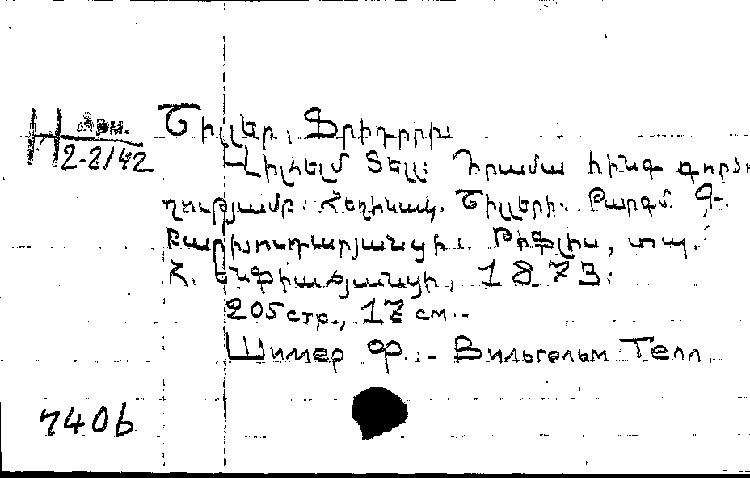 Շիլլեր, Ֆրիդրիխ
Վիլհելմ Տելլ: Դրամա հինգ գործո
ղությամբ: Հեղինակ. Շիլլերի. Թարգմ. Գ.
Բարխուդարյանցի: Թիֆլիս, տպ.
Հ. Էնֆիաճյանցի, 1873:
205 стр., 17 см.-
Шиллер Ф.:- Вильгельм Телл
2-2/42
7406